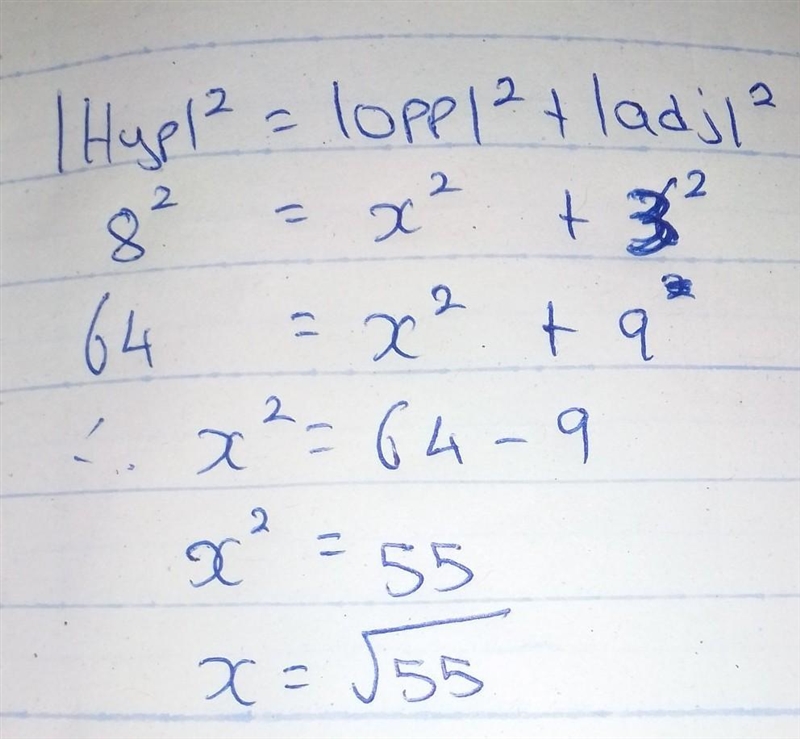 |Hyp|² = |opp|² + |adj|²
8² = x² + 3²
64 = x² + 9
∴ x² = 64 - 9
x² = 55
x = √55